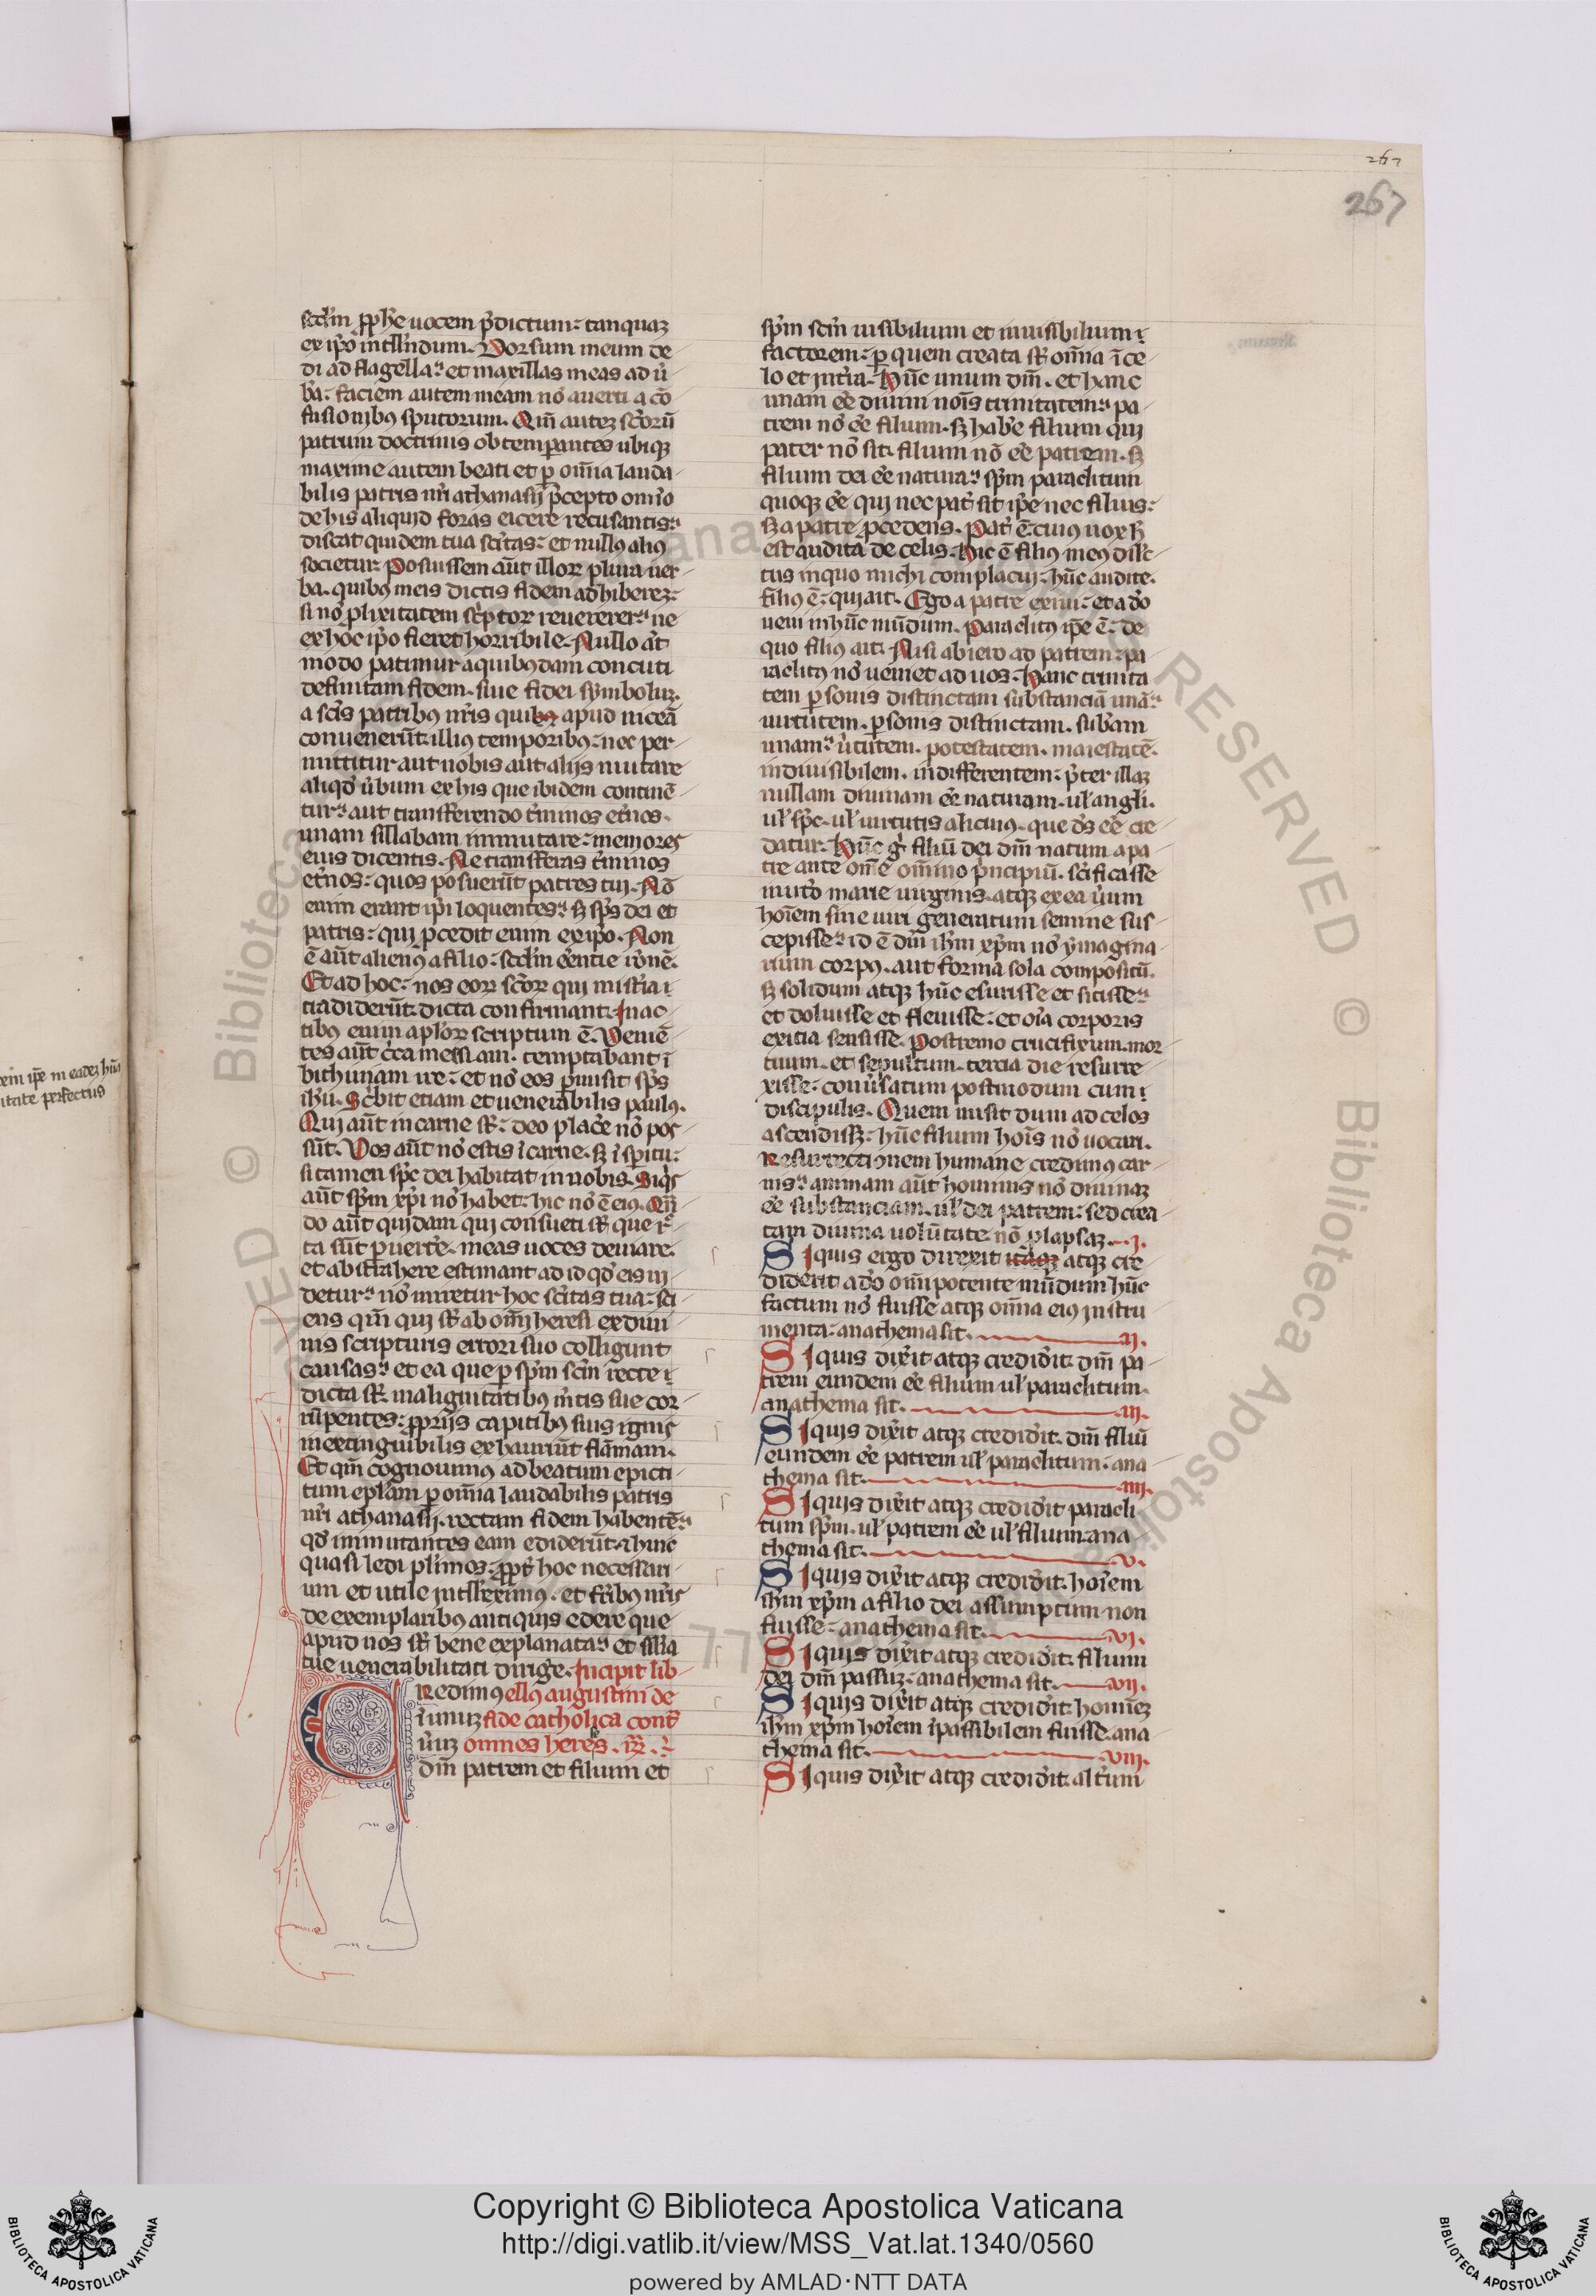 267
267
scd'm ꝓph'e uocem p̃dictum: tanquaʒ
ex ip̃o intll'ndum. Dorsum meum de
di ad flagella: et maxillas meas ad ũ
b'a: faciem autem meam nõ auerti a cõ
fusionibꝰ sputorum. Qm̃ auteʒ sc̃orũ
patrum doctrinis obtemꝑantes ubiqʒ
maxime autem beati et ꝑ om̃ia lauda
bilis patris nr̃i athanasij p̃cepto omĩo
de his aliquid foras eicere recusantis:
discat quidem tua sc̃itas: et nullꝰ aliꝰ
societur. Posuissem aũt illoꝝ plura uer
ba. quibꝰ meis dictis fidem adhibereʒ:
si nõ ꝓlixitatem sc̃ptoꝝ reuererer: ne
ex hoc ip̃o fieret horribile. Nullo aũt
modo patimur a quibꝰdam concuti
definitam fidem. siue fidei symboluʒ.
a sc̃is patribꝰ nr̃is quibꝰ apud niceã
conuenerũt illius temporibꝰ: nec per
mittitur aut nobis aut alijs mutare
aliqd̃ ũbum ex his que ibidem continẽ
tur: aut transferendo t̃minos et̃nos.
unam sillabam inmutare: memores
eius dicentis. Ne transferas t̃minos
et̃nos: quos posuerũt patres tui. Nõ
enim erant ip̃i loquentes: sʒ sp̃s dei et
patris: qui ꝓcedit enim ex ip̃o. Non
ẽ aũt alienꝰ a filio: scd'm eẽntie rõnẽ.
Et ad hoc: nos eoꝝ sc̃oꝝ qui mist̃ia t
tradiderũt dicta confirmant. In ac
tibꝰ enim apl'oꝝ scriptum ẽ. Veniẽ
tes aũt c̃ca messiam. temptabant ĩ
bithiniam ire: et nõ eos ꝑmisit sp̃s
ih̃u. Sc̃bit etiam et uenerabilis paulꝰ.
Qui aũt in carne sũt: deo plac̃e nõ pos
sũt. Vos aũt nõ estis ĩ carne. sʒ ĩ sp̃itu:
si tamen sp̃c dei habitat in uobis. Siq̃s
aũt sp̃m xp̃i nõ habet: hic nõ ẽ eiꝰ. Qñ
do aũt quidam qui consueti sũt que r̃
ta sũt ꝑuert̃e. meas uoces deuiare.
et abstrahere estimant ad id qd̃ eis ui
detur: nõ miretur hoc sc̃itas tua: sci
ens qm̃ qui sũt ab om̃i heresi ex diui
nis scripturis errori suo colligunt
causas: et ea que ꝑ sp̃m sc̃m recte t
dicta sũt malignitatibꝰ m̃tis sue cor
rũpentes: ꝓprijs capitibꝰ suis ignis
inextinguibilis exhauriũt flãmam.
Et qm̃ cognouimꝰ ad beatum epicti
tum epl'am ꝑ om̃ia laudabilis patris
nr̃i athanasij. rectam fidem habentẽ:
qd̃ inmutantes eam ediderũt. hinc
quasi ledi pl'imos: ꝓpt̃ hoc necessari
um et utile intll'eximꝰ. et fr̃ibꝰ nr̃is
de exemplaribꝰ antiquis edere que
apud nos sũt bene explanata: et sil'ia
tue uenerabilitati dirige. Incipit lib
Redimꝰ ellꝰ augustini de
ĩ unuʒ fide catholica cont̃
ũuʒ omnes hereses.
dm̃ patrem et filium et
sp̃m sc̃m uisibilium et inuisibilium t
factorem: ꝑ quem creata sũt om̃ia ĩ ce
lo et in t̃ra. Hũc unum dm̃. et hanc
unam eẽ diuini noĩs trinitatem: pa
trem nõ eẽ filium. sʒ hab'e filium qui
pater nõ sit. filium nõ eẽ patrem. sʒ
filium dei eẽ natura: sp̃m paraclitum
quoqʒ eẽ qui nec pat̃ sit ip̃e nec filius:
sʒ a patre ꝓcedens. Pat̃ ẽ: cuius uox hʒ
est audita de celis. Hic ẽ filiꝰ meꝰ dil'c
tus in quo michi complacui: hũc audite.
filiꝰ ẽ: qui ait. Ego a patre exiui: et a dõ
ueni in hũc mũdum. Paraclitꝰ ip̃e ẽ: de
quo filiꝰ ait. Nisi abiero ad patrem: pa
raclitꝰ nõ ueniet ad uos. Hanc trinita
tem ꝑsonis distinctam substanciã unã:
uirtutem. ꝑsonis distinctam. sub'am
unam: ũtutem. potestatem. maiestatẽ.
indiuisibilem. indifferentem: p̃ter illaʒ
nullam diuinam eẽ naturam. ul' angli.
ul' sp̃c. ul' uirtutis alicuius. que d̃s eẽ cre
datur. Hũc g̃ filiũ dei dm̃ natum a pa
tre ante om̃e om̃ino p̃ncipiũ. sc̃ificasse
in ut̃o marie uirginis. atqʒ ex ea ũum
hoĩem sine uiri generatum semine sus
cepisse: id ẽ dm̃ ih̃m xp̃m nõ ymagina
rium corpꝰ. aut forma sola compositũ.
sʒ solidum atqʒ hũc esurisse et sitisse:
et doluisse et fleuisse: et oĩa corporis
exitia sensisse. Postremo crucifixum. mor
tuum. et sepultum. tercia die resurre
xisse: conũsatum postmodum cum t
discipulis. Quem misit dum ad celos
ascendissʒ: hũc filium hoĩs nõ uocari.
Resurrectionem humane credimꝰ car
nis: animam aũt hominis nõ diuinaʒ
eẽ substanciam. ul' dei patrem: sed crea
tam diuina uolũtate nõ ꝓlapsaʒ. I.
Siquis ergo direxit itaqʒ atqʒ cre
diderit a dõ om̃ipotente mũdum hũc
factum nõ fuisse atqʒ om̃ia eiꝰ instru
menta: anathema sit. II.
Siquis dix̃it atqʒ credid̃it. dm̃ pa
trem eundem eẽ filium ul' paraclitum.
anathema sit. III.
Siquis dix̃it atqʒ credid̃it. dm̃ filiũ
eundem eẽ patrem ul' paraclitum. ana
thema sit. IIII.
Siquis dix̃it atqʒ credid̃it paracli
tum sp̃m. ul' patrem eẽ ul' filium. ana
thema sit. V.
Siquis dix̃it atqʒ credid̃it. hoĩem
ih̃m xp̃m a filio dei assumptum non
fuisse: anathema sit. VI.
Siquis dix̃it atqʒ credid̃it. filium
dei dm̃ passuʒ: anathema sit. VII.
Siquis dix̃it atqʒ credid̃it. hominẽʒ
ih̃m xp̃m hoĩem ĩpassibilem fuisse. ana
thema sit. VIII.
Siquis dix̃it atqʒ credid̃it. alt̃um
Copyright © Biblioteca Apostolica Vaticana
http://digi.vatlib.it/view/MSS_Vat.lat.1340/0560
powered by AMLAD·NTT DATA
BIBLIOTECA APOSTOLICA VATICANA
BIBLIOTECA APOSTOLICA VATICANA